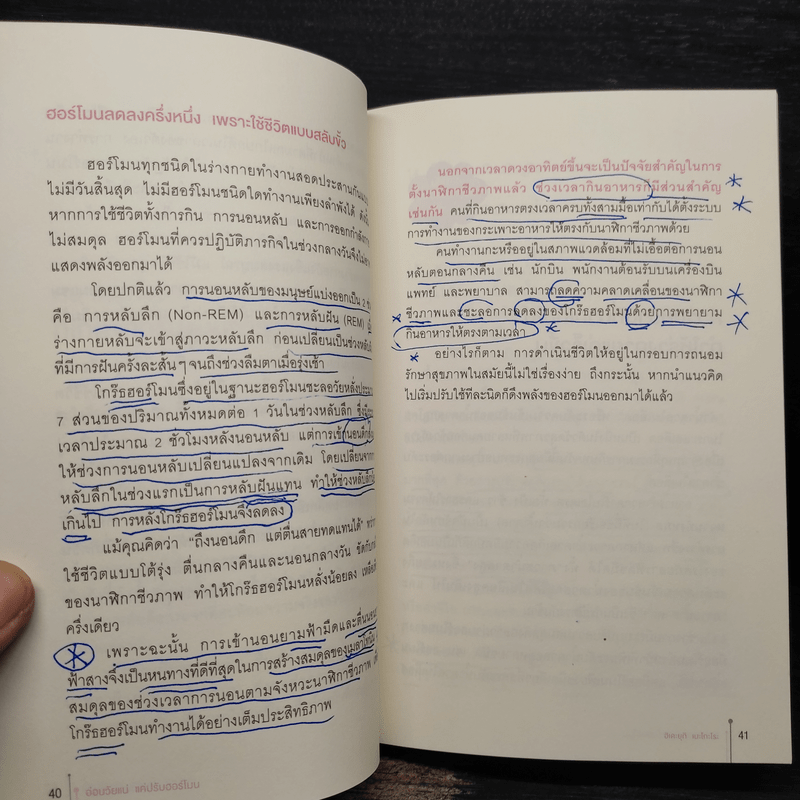 ฮอร์โมนลดลงครึ่งหนึ่ง เพราะใช้ชีวิตแบบสลับขั้ว
ฮอร์โมนทุกชนิดในร่างกายทำงานสอดประสานกันแบบ
ไม่มีวันสิ้นสุด ไม่มีฮอร์โมนชนิดใดทำงานเพียงลำพังได้
หากการใช้ชีวิตทั้งการกิน การนอนหลับ และการออกกำลังกาย
ไม่สมดุล ฮอร์โมนที่ควรปฏิบัติภารกิจในช่วงกลางวันจึงไม่อาจ
แสดงพลังออกมาได้
โดยปกติแล้ว การนอนหลับของมนุษย์แบ่งออกเป็น 2
คือ การหลับลึก (Non-REM) และการหลับฝัน (REM)
ร่างกายหลับจะเข้าสู่ภาวะหลับลึก ก่อนเปลี่ยนเป็นช่วงหลับ
ที่มีการฝันครั้งละสั้นๆ จนถึงช่วงลืมตาเมื่อรุ่งเช้า
โกร๊ธฮอร์โมนซึ่งอยู่ในฐานะฮอร์โมนชะลอวัยหลั่งประมาณ
7 ส่วนของปริมาณทั้งหมดต่อ 1 วันในช่วงหลับลึก
เวลาประมาณ 2 ชั่วโมงหลังนอนหลับ แต่การเข้านอนดึก
ให้ช่วงการนอนหลับเปลี่ยนแปลงจากเดิม โดยเปลี่ยนจาก
หลับลึกในช่วงแรกเป็นการหลับฝันแทน ทำให้ช่วงหลับลึก
เกินไป การหลั่งโกร๊ธฮอร์โมนจึงลดลง
แม้คุณคิดว่า "ถึงนอนดึก แต่ตื่นสายทดแทนได้"
ใช้ชีวิตแบบโต้รุ่ง ตื่นกลางคืนและนอนกลางวัน
ของนาฬิกาชีวภาพ ทำให้โกร๊ธฮอร์โมนหลั่งน้อยลง
ครึ่งเดียว
เพราะฉะนั้น การเข้านอนยามฟ้ามืดและตื่นนอน
ฟ้าสางจึงเป็นหนทางที่ดีที่สุดในการสร้างสมดุลของเมลาโทนิน
สมดุลของช่วงเวลาการนอนตามจังหวะนาฬิกาชีวภาพ
โกร๊ธฮอร์โมนทำงานได้อย่างเต็มประสิทธิภาพ
40 อ่อนวัยแน่ แค่ปรับฮอร์โมน
นอกจากเวลาดวงอาทิตย์ขึ้นจะเป็นปัจจัยสำคัญในการ
ตั้งนาฬิกาชีวภาพแล้ว ช่วงเวลากินอาหารก็มีส่วนสำคัญ
เช่นกัน คนที่กินอาหารตรงเวลาครบทั้งสามมื้อเท่ากับได้ตั้งระบบ
การทำงานของกระเพาะอาหารให้ตรงกับนาฬิกาชีวภาพด้วย
คนทำงานกะหรืออยู่ในสภาพแวดล้อมที่ไม่เอื้อต่อการนอน
หลับตอนกลางคืน เช่น นักบิน พนักงานต้อนรับบนเครื่องบิน
แพทย์ และพยาบาล สามารถลดความคลาดเคลื่อนของนาฬิกา
ชีวภาพและชะลอการลดลงของโกร๊ธฮอร์โมนด้วยการพยายาม
กินอาหารให้ตรงตามเวลา
อย่างไรก็ตาม การดำเนินชีวิตให้อยู่ในกรอบการถนอม
รักษาสุขภาพในสมัยนี้ไม่ใช่เรื่องง่าย ถึงกระนั้น หากนำแนวคิด
ไปเริ่มปรับใช้ทีละนิดก็ดึงพลังของฮอร์โมนออกมาได้แล้ว
41